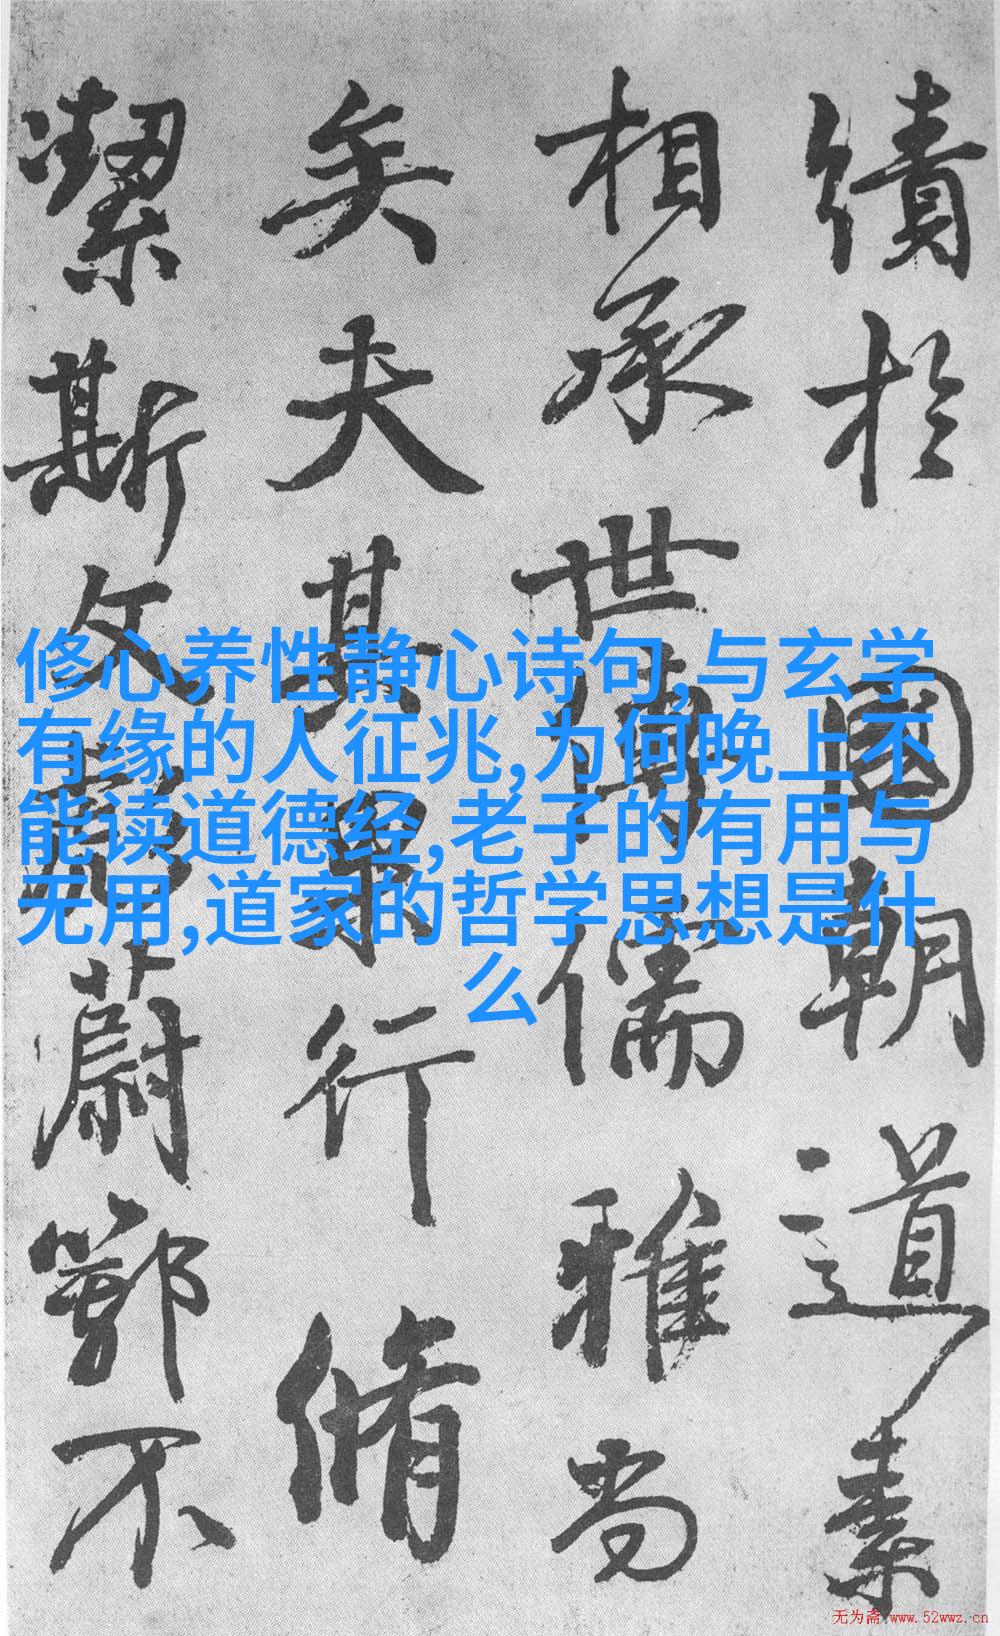 績於國朝道素
相承世傳儒雅尚
矣夫其果行脩
潔斯文彪蔚鄂不
修心养性静心诗句,与玄学
有缘的人征兆,为何晚上不
能读道德经,老子的有用与
无用,道家的哲学思想是什
么
无为斋 www.52wwz.cn